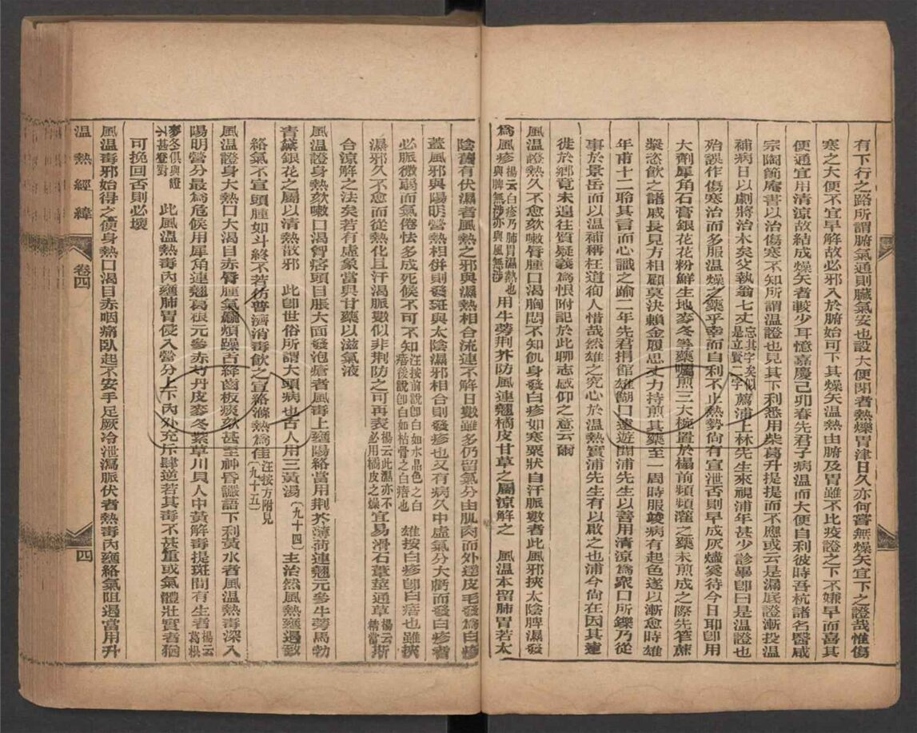 有下行之路所謂腑氣通則臟氣安也設大便閉者熱爍胃津日久亦何嘗無燥矢宜下之證哉惟傷
寒之大便不宜早解故必邪入於腑始可下其燥矢溫熱由肺及胃雖不比疫證之下不嫌早而喜其
便通宜用清涼故結成燥矢者較少耳憶嘉慶己卯春先君子病溫而大便自利彼時吾杭諸名醫咸
宗陶節庵書以治傷寒不知所謂溫證也見其下利悉用柴葛升提提而不應或云是漏底證漸投溫
補病日以劇將治木矣父執翁七丈忘其字矣似是立賢二字薦浦上林先生來視浦年甚少診畢卽曰是溫證也
殆誤作傷寒治而多服溫燥之藥乎幸而自利不止熱勢尚有宣泄否則早成灰燼奚待今日耶卽用
大劑犀角石膏銀花花粉鮮生地麥冬等藥囑煎三大椀置於榻前頻頻灌之藥未煎成之際先笮蔗
漿恣飲之諸戚長見方相顧莫決賴金履思丈力持煎其藥至一周時服竣病有起色遂以漸愈時雄
年甫十二聆其言而心識之踰二年先君捐館雄餬口遠遊聞浦先生以善用清涼為衆口所鑠乃從
事於景岳而以溫補稱枉道徇人惜哉然雄之究心於溫熱實浦先生有以啟之也浦今尚在因其遠
徙於鄉竟未遑往質疑義為恨附記於此聊志感仰之意云爾
風溫證熱久不愈欬嗽脣腫口渴胸悶不知飢身發白疹如寒粟狀自汗脈數者此風邪挾太陰脾濕發
為風疹楊云白疹乃肺胃濕熱也與脾無涉亦與風無涉用牛蒡荊芥防風連翹橘皮甘草之屬涼解之 風溫本留肺胃若太
陰舊有伏濕者風熱之邪與濕熱相合流連不解日數雖多仍留氣分由肌肉而外達皮毛發為白疹
蓋風邪與陽明營熱相併則發斑與太陰濕邪相合則發疹也又有病久中虛氣分大虧而發白疹者
必脈微弱而氣倦怯多成死候不可不知汪按前說卽白如水晶色之白瘖後說卽白如枯骨之白瘖也 雄按白疹卽白瘖也雖挾
濕邪久不愈而從熱化且汗渴脈數似非荊防之可再表楊云此濕亦不必用橘皮之燥宜易滑石葦莖通草楊云精當斯
合涼解之法矣若有虛象當與甘藥以滋氣液
風溫證身熱欬嗽口渴脅痞頭目脹大面發泡瘡者風毒上壅陽絡當用荊芥薄荷連翹元參牛蒡馬勃
青黛銀花之屬以清熱散邪 此卽世俗所謂大頭病也古人用三黃湯（九十四）主治然風熱壅遏致
絡氣不宣頭腫如斗終不若仿普濟消毒飲之宣絡滌熱為佳汪按方附見（九十五）
風溫證身大熱口大渴目赤脣腫氣麤煩躁舌絳齒板痰欬甚至神昏譫語下利黃水者風溫熱毒深入
陽明營分最為危候用犀角連翹葛根元參赤芍丹皮麥冬紫草川貝人中黃解毒提斑間有生者楊云葛根
麥冬俱與證不甚登對 此風溫熱毒內壅肺胃侵入營分上下內外充斥肆逆若其毒不甚重或氣體壯實者猶
可挽回否則必壞
風溫毒邪始得之便身熱口渴目赤咽痛臥起不安手足厥冷泄瀉脈伏者熱毒內壅絡氣阻遏當用升
溫熱經緯
卷四
四